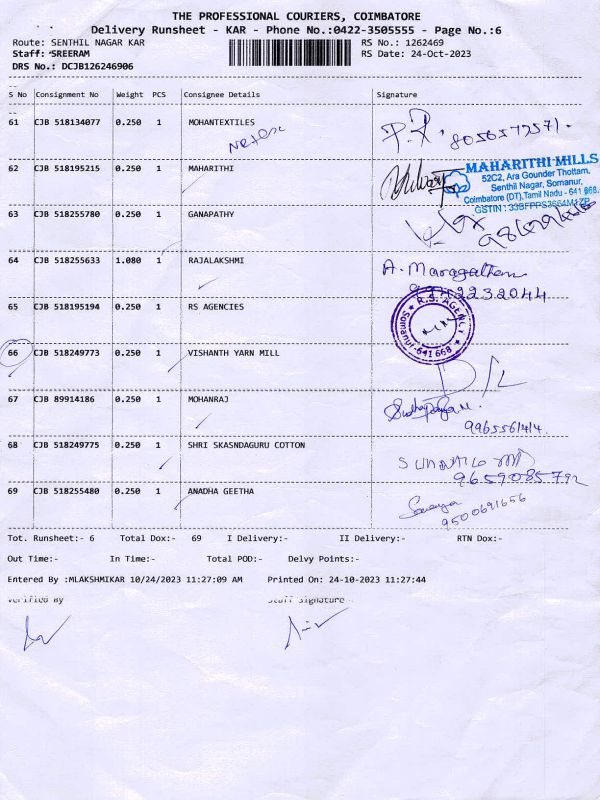 THE PROFESSIONAL COURIERS, COIMBATORE
Delivery Runsheet - KAR - Phone No.:0422-3505555 - Page No.:6
Route: SENTHIL NAGAR KAR RS No.: 1262469
Staff: SREERAM RS Date: 24-Oct-2023
DRS No.: DCJB126246906
S No Consignment No Weight PCS Consignee Details Signature
61 CJB 518134077 0.250 1 MOHANTEXTILES
8056572571.
62 CJB 518195215 0.250 1 MAHARITHI
MAHARITHI MILLS
52C2, Ara Gounder Thottam,
Senthil Nagar, Somanur,
Coimbatore (DT), Tamil Nadu - 641 668.
GSTIN : 33BFPPS3664M1ZP
63 CJB 518255780 0.250 1 GANAPATHY
64 CJB 518255633 1.080 1 RAJALAKSHMI
A. Maragatham
65 CJB 518195194 0.250 1 RS AGENCIES
R.S. AGENCY
Somanur-641 668
66 CJB 518249773 0.250 1 VISHANTH YARN MILL
D/L
67 CJB 89914186 0.250 1 MOHANRAJ
9965561414.
68 CJB 518249775 0.250 1 SHRI SKASNDAGURU COTTON
9659085792
69 CJB 518255480 0.250 1 ANADHA GEETHA
9500691656
Tot. Runsheet:- 6 Total Dox:- 69 I Delivery:- II Delivery:- RTN Dox:-
Out Time:- In Time:- Total POD:- Delvy Points:-
Entered By :MLAKSHMIKAR 10/24/2023 11:27:09 AM Printed On: 24-10-2023 11:27:44
Verified By Staff Signature